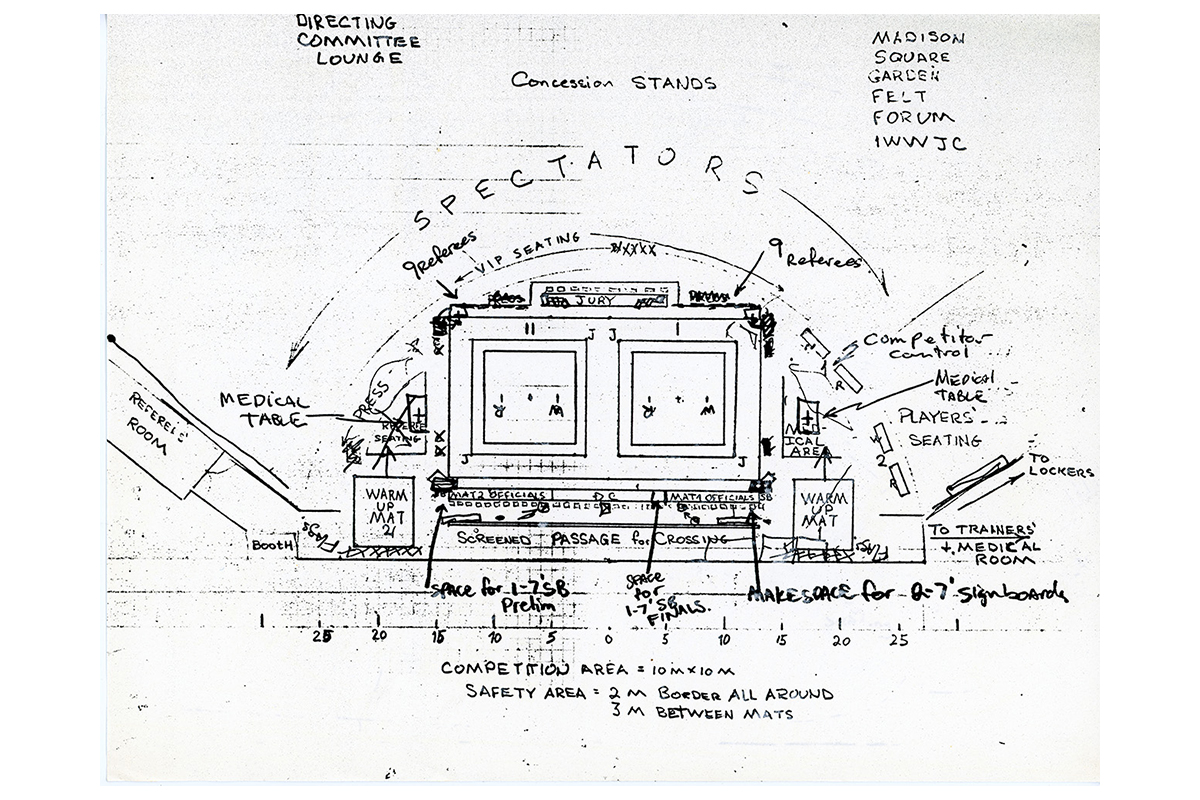 DIRECTING
COMMITTEE
LOUNGE
MADISON
SQUARE
GARDEN
FELT
FORUM
IWWJC
Concession STANDS
SPECTATORS
9 Referees
VIP SEATING
XXXXX
9 Referees
JURY
II
J J
I
Competitor
control
R
PRESS
MEDICAL
TABLE
MEDICAL
TABLE
REFEREE
SEATING
R W
R W
MED
ICAL
AREA
PLAYERS'
SEATING
W
2
R
REFEREE'S
ROOM
J
J
TO
LOCKERS
WARM
UP
MAT
2
MAT 2 OFFICIALS
C
MAT 1 OFFICIALS
SB
WARM
UP
MAT
1
BOOTH
FLAGS
SCREENED PASSAGE for CROSSING
FLAGS
TO TRAINERS'
+ MEDICAL
ROOM
SPACE for 1-7' SB
Prelim
SPACE
for
1-7' SB
FINALS.
MAKE SPACE for 2-7' Signboards
25 20 15 10 5 0 5 15 20 25
COMPETITION AREA = 10 M x 10 M
SAFETY AREA = 2 M BORDER ALL AROUND
3 M BETWEEN MATS